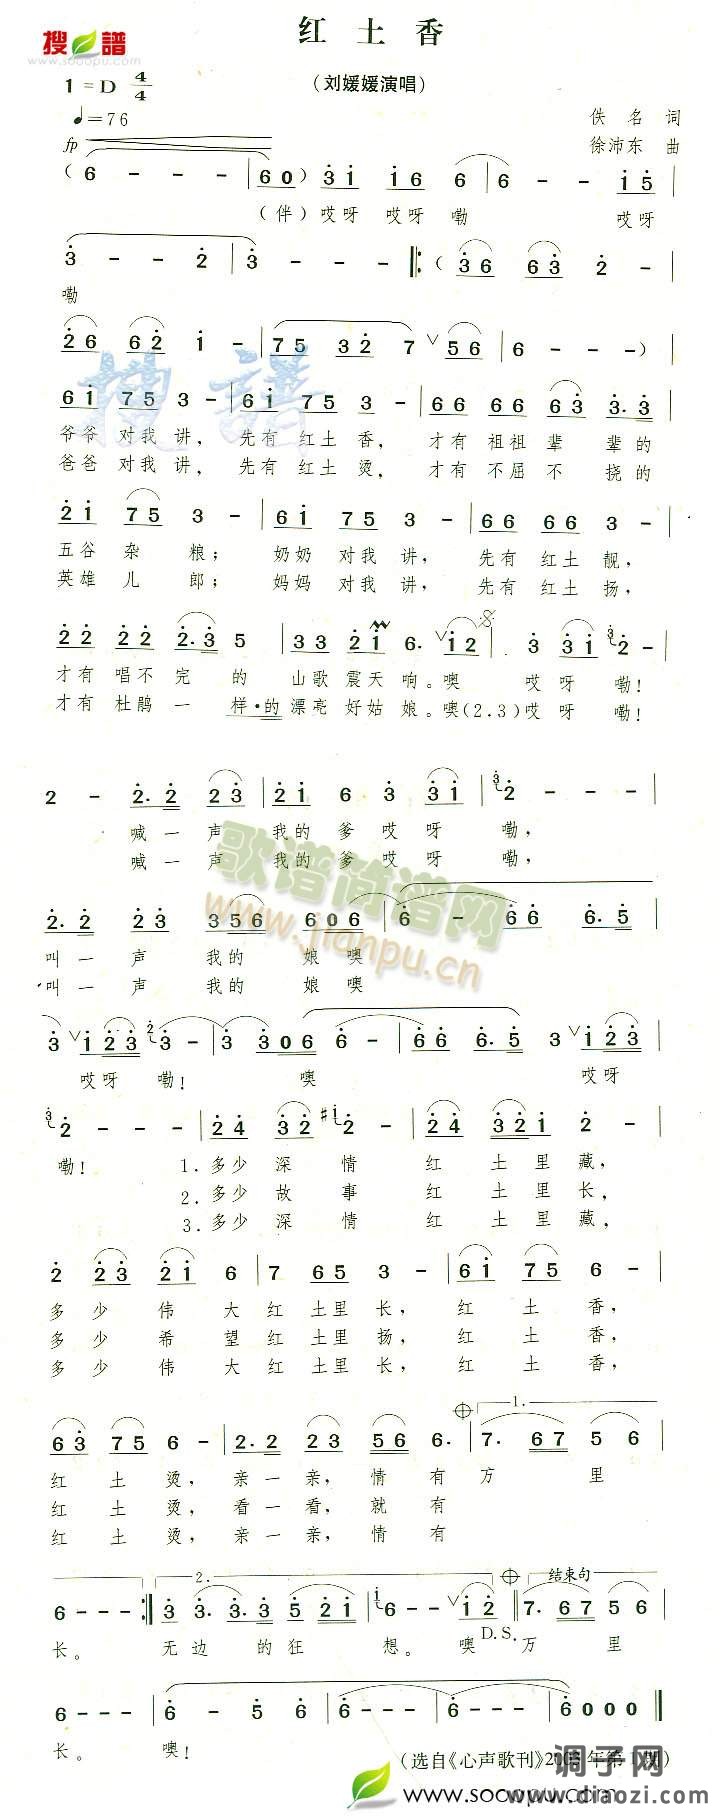 红 土 香
搜 谱
www.sooopu.com
(刘媛媛演唱)
1=D 4/4
♩=76
佚 名 词
徐沛东 曲
fp
(6 - - - | 60) 3i i6 6 | 6 - - i5 |
(伴)哎呀 哎呀 嘞 哎呀
3 - - 2 | 3 - - - ‖: (36 63 2 - |
嘞
26 62 i - | 75 32 7 ∨56 | 6 - - -) |
6i 75 3 - | 6i 75 3 - | 66 66 63 3.3 |
爷爷 对我 讲, 先有 红土 香, 才有 祖祖 辈 辈的
爸爸 对我 讲, 先有 红土 烫, 才有 不屈 不 挠的
2i 75 3 - | 6i 75 3 - | 66 66 3 - |
五谷 杂 粮; 奶奶 对我 讲, 先有 红土 靓,
英雄 儿 郎; 妈妈 对我 讲, 先有 红土 扬,
22 22 2.3 5 | 33 2i 6. ∨i2 | 3 33i 2 - |
才有 唱不 完 的 山歌 震天 响。噢 哎呀 嘞!
才有 杜鹃 一 样·的 漂亮 好姑 娘。噢(2.3)哎呀 嘞!
2 - 2.2 23 | 2i 6 3 3i | 2 - - - |
喊一 声 我的 爹 哎呀 嘞,
喊一 声 我的 爹 哎呀 嘞,
2.2 23 356 606 | 6 - 66 6.5 |
叫一 声 我的 娘 噢
叫一 声 我的 娘 噢
3 ∨i23 3 - - | 3 306 6 - | 66 6.5 3 ∨i23 |
哎呀 嘞! 噢 哎呀
2 - - - | 24 32 #i 2 - | 24 32i 2 - |
嘞! 1.多少 深 情 红 土里 藏,
2.多少 故 事 红 土里 长,
3.多少 深 情 红 土里 藏,
2 23 2i 6 | 7 65 3 - | 6i 75 6 - |
多 少 伟 大 红 土里 长, 红 土 香,
多 少 希 望 红 土里 扬, 红 土 香,
多 少 伟 大 红 土里 长, 红 土 香,
1.
63 75 6 - | 2.2 23 66 6. | 7. 67 5 6 |
红 土 烫, 亲一 亲, 情 有 万 里
红 土 烫, 看一 看, 就 有
红 土 烫, 亲一 亲, 情 有
2. 结束句
6 - - - :‖ 3 3.3 5 2i | 6 - - ∨i2 ‖ 7. 67 56 |
长。 无 边 的 狂 想。噢 万 里
D.S.
6 - - - | 6 - 5 6 | 6 - - - | 6 - - - | 6000 ‖
长。 噢!
(选自《心声歌刊》2003年第1期)
歌谱简谱网
www.jianpu.cn
www.sooopu.com
调子网
www.diaozi.com